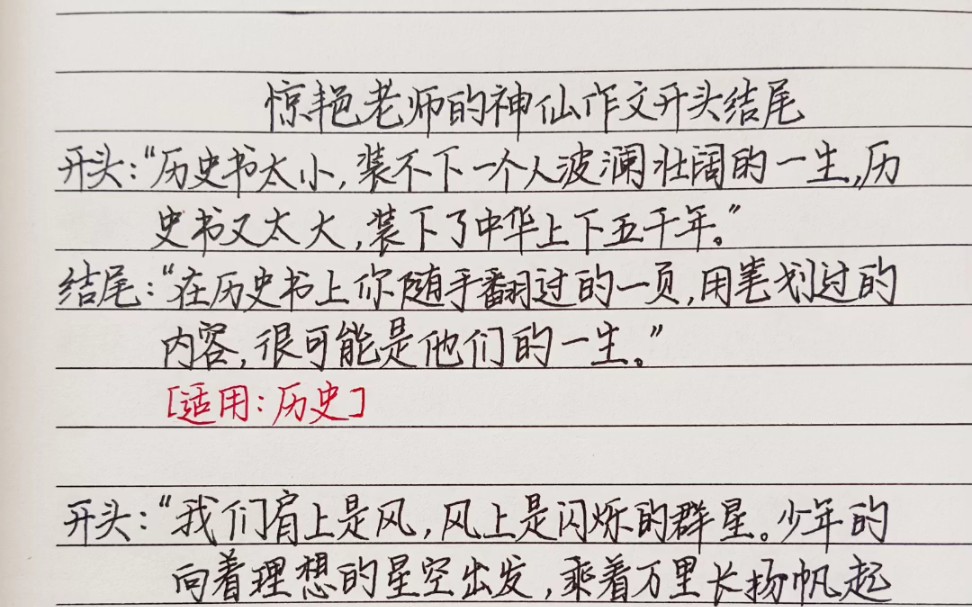 惊艳老师的神仙作文开头结尾
开头:“历史书太小,装不下一个人波澜壮阔的一生,历
史书又太大,装下了中华上下五千年。”
结尾:“在历史书上你随手翻过的一页,用笔划过的
内容,很可能是他们的一生。”
[适用:历史]
开头:“我们肩上是风,风上是闪烁的群星。少年的
向着理想的星空出发,乘着万里长扬帆起